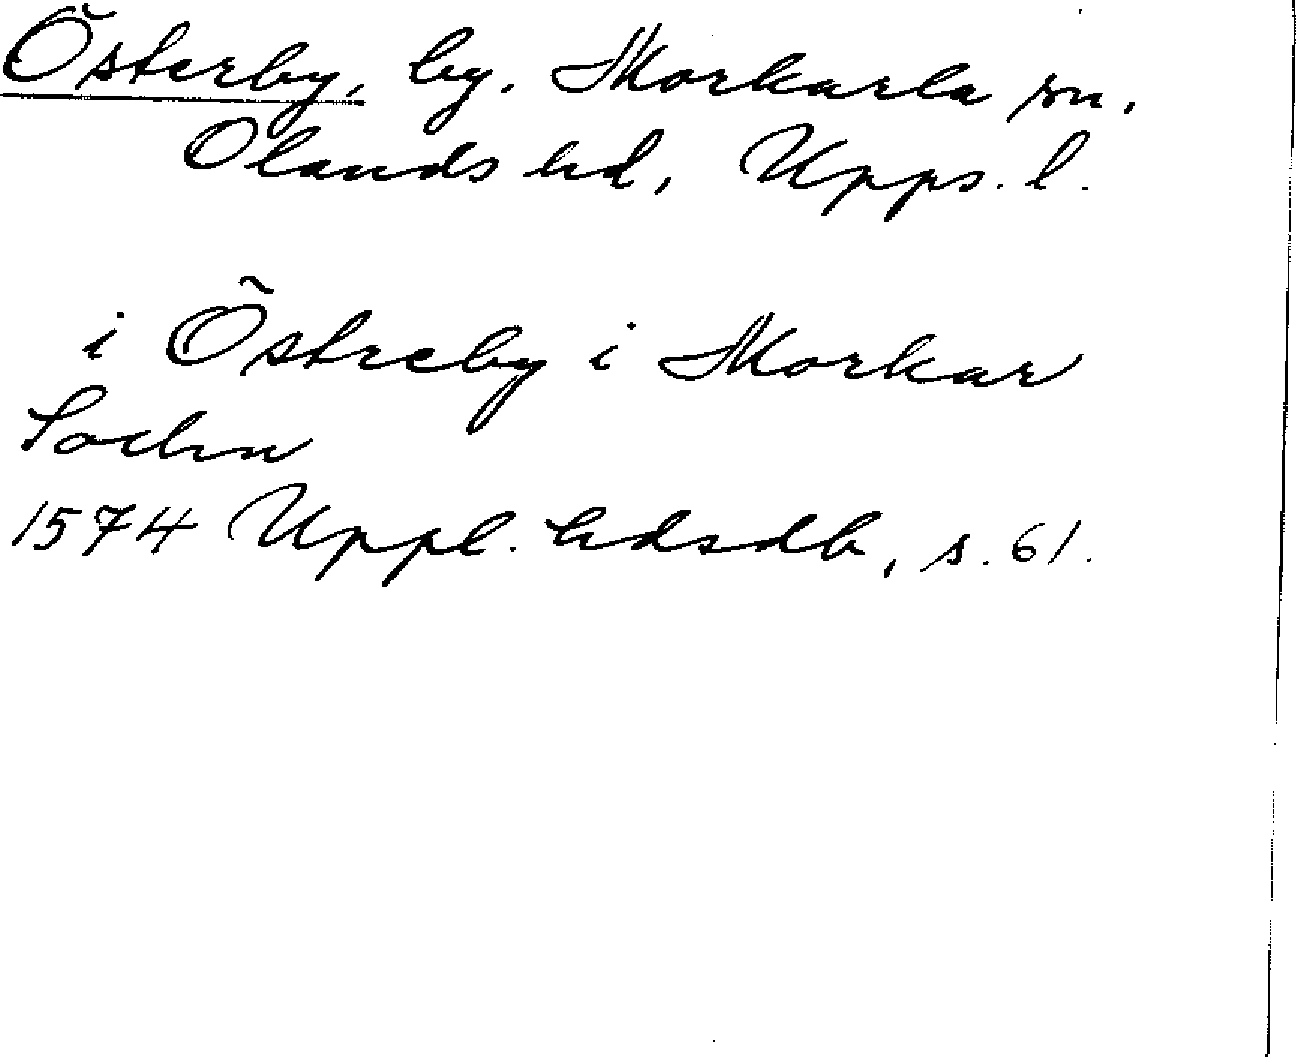 Österby, by. Morkarla sn,
Olands hd, Upps. l.
i Östreby i Morkar
Sochn
1574 Uppl. hdsdb, s. 61.